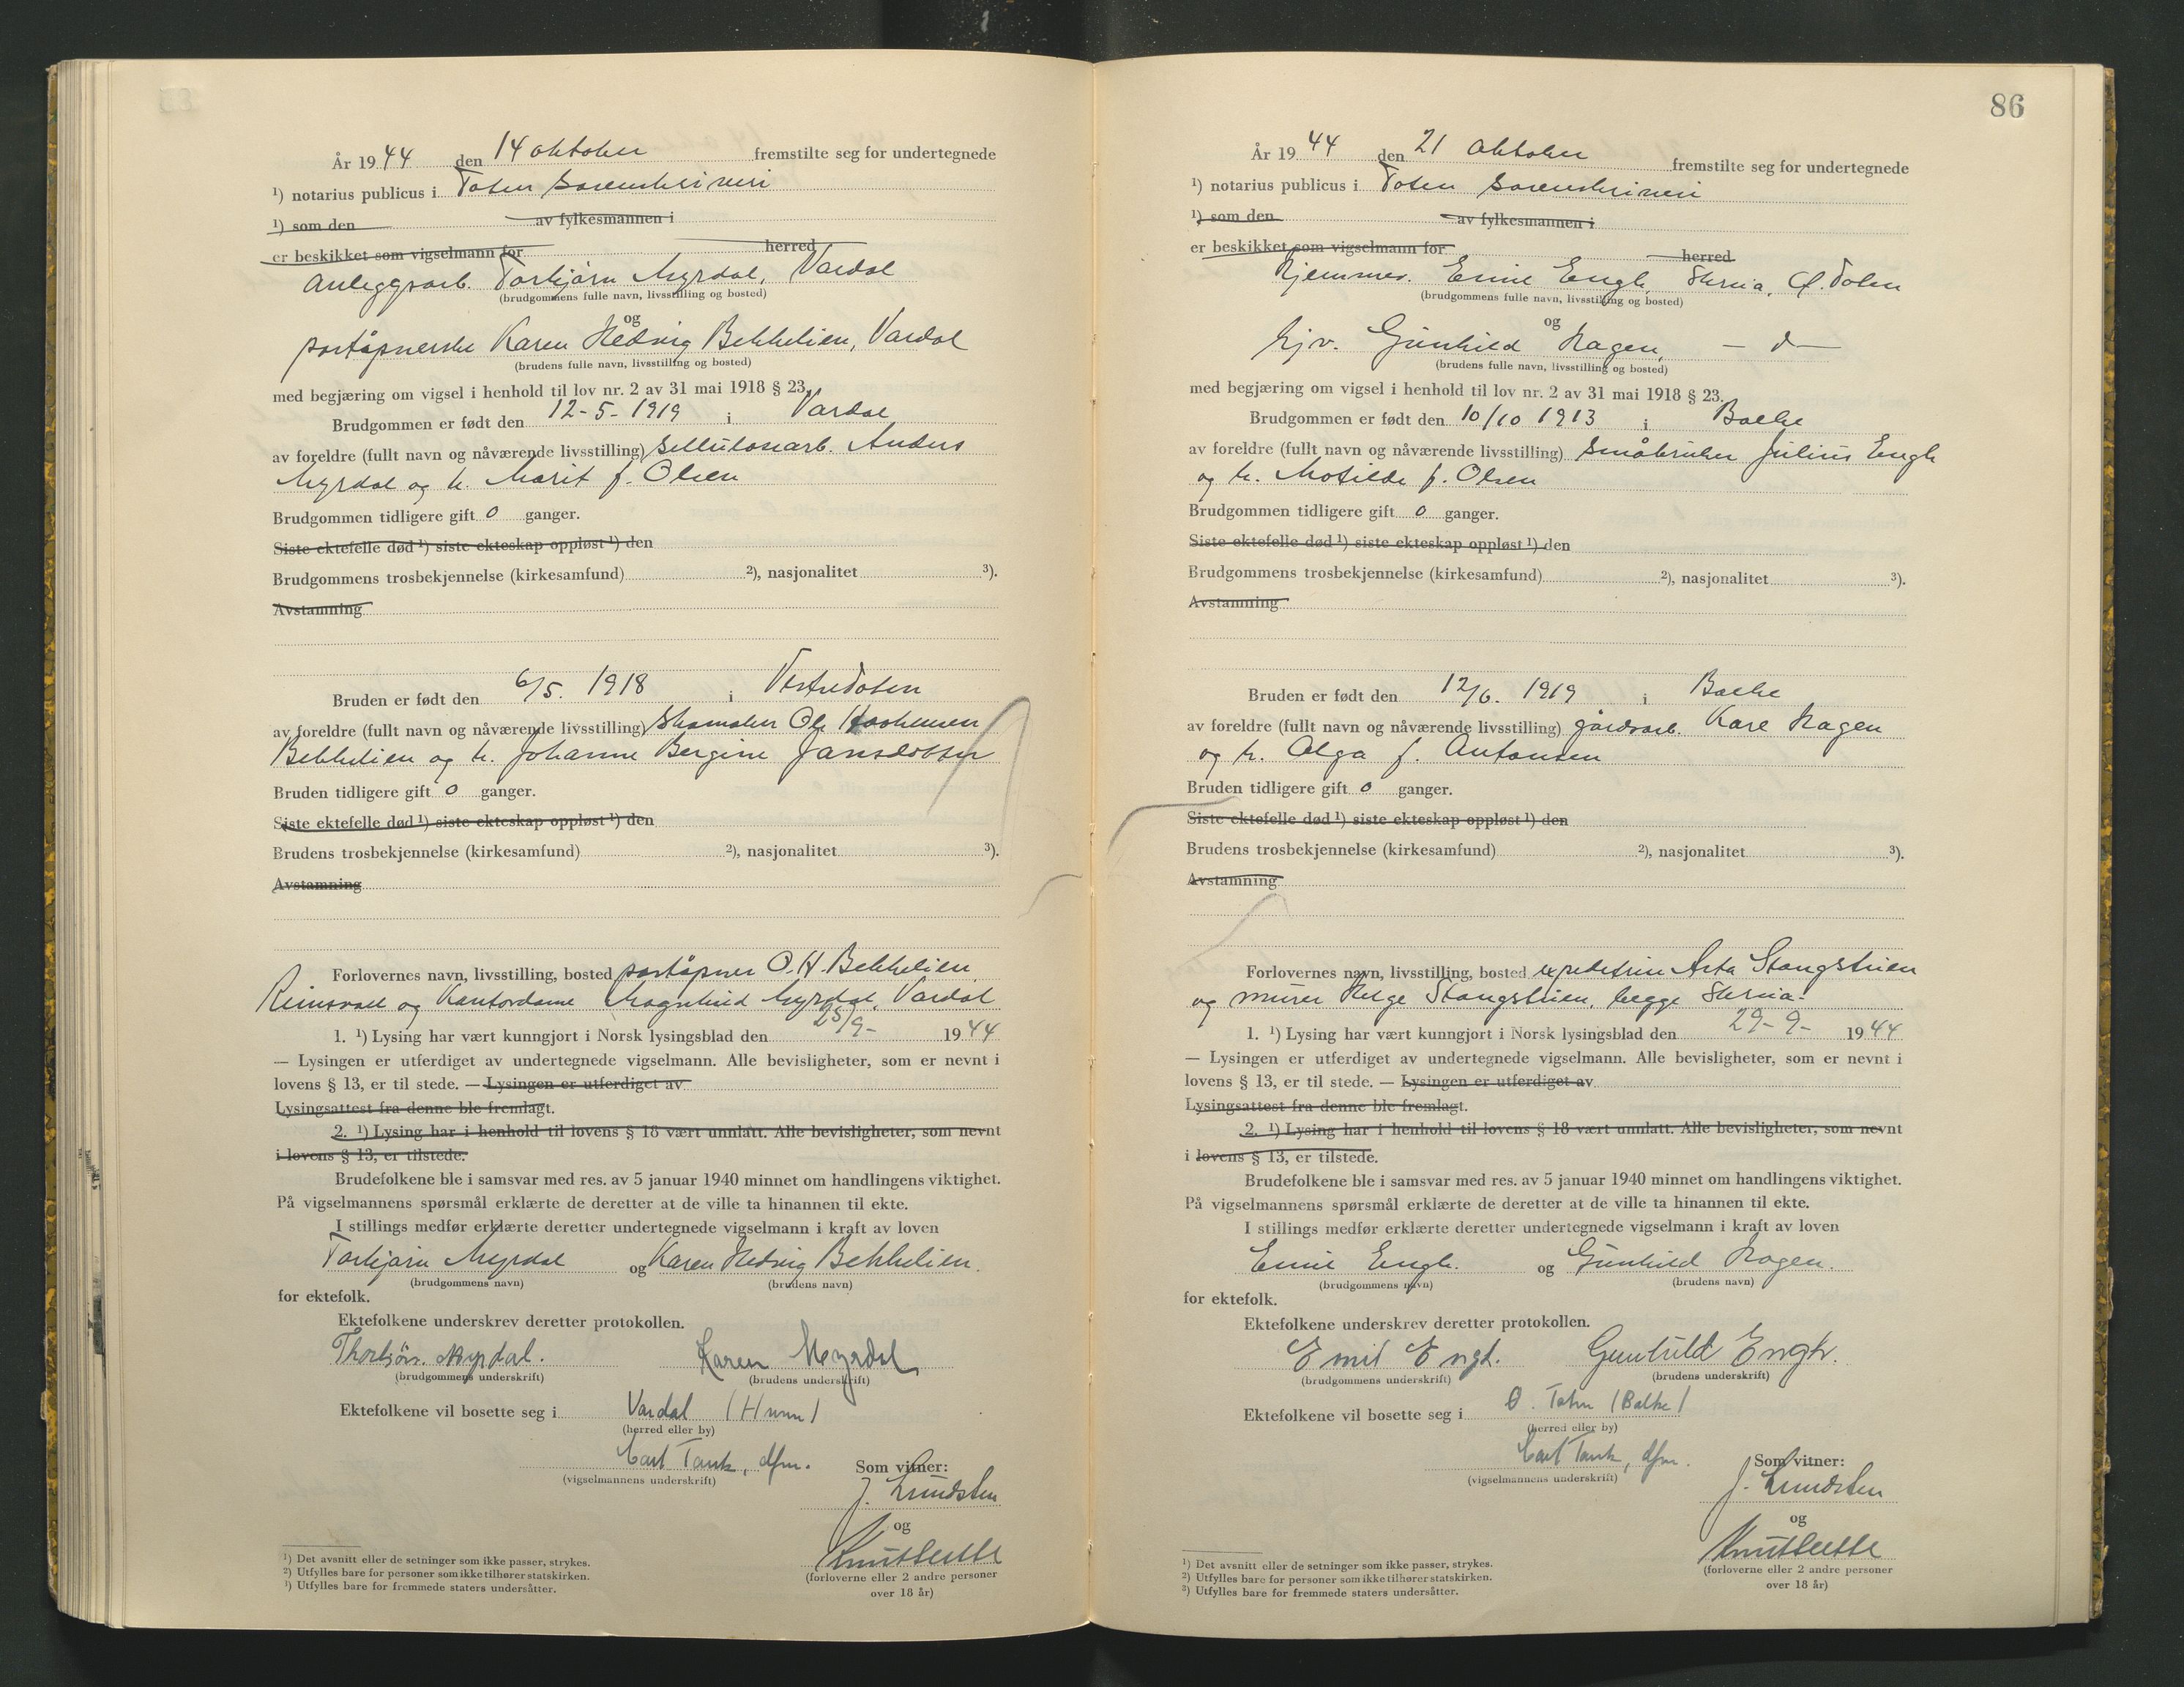 År 1944 den 14 oktober fremstilte seg for undertegnede
¹) notarius publicus i Toten sorenskriveri
¹) som den av fylkesmannen i
er beskikket som vigselmann for herred
Anleggsarb. Torbjørn Myrdal, Vardal
(brudgommens fulle navn, livsstilling og bosted)
og
poståpnerske Karen Hedvig Bekkelien, Vardal
(brudens fulle navn, livsstilling og bosted)
med begjæring om vigsel i henhold til lov nr. 2 av 31 mai 1918 § 23.
Brudgommen er født den 12-5-1919 i Vardal
av foreldre (fullt navn og nåværende livsstilling) sellulosearb. Anders
Myrdal og h. Marit f. Olsen
Brudgommen tidligere gift 0 ganger.
Siste ektefelle død ¹) siste ekteskap oppløst ¹) den
Brudgommens trosbekjennelse (kirkesamfund) ²), nasjonalitet ³).
Avstamning
Bruden er født den 6/5. 1918 i Vestre Toten
av foreldre (fullt navn og nåværende livsstilling) skomaker Ole
Bekkelien og h. Johanne Bergine Jansdotter
Bruden tidligere gift 0 ganger.
Siste ektefelle død ¹) siste ekteskap oppløst ¹) den
Brudens trosbekjennelse (kirkesamfund) ²), nasjonalitet ³).
Avstamning
Forlovernes navn, livsstilling, bosted poståpner O. H. Bekkelien
Reinsvoll og Kontordame Magnhild Myrdal, Vardal
1. ¹) Lysing har vært kunngjort i Norsk lysingsblad den 25/9- 1944
— Lysingen er utferdiget av undertegnede vigselmann. Alle bevisligheter, som er nevnt i
lovens § 13, er til stede. — Lysingen er utferdiget av
Lysingsattest fra denne ble fremlagt.
2. ¹) Lysing har i henhold til lovens § 18 vært unnlatt. Alle bevisligheter, som nevnt
i lovens § 13, er tilstede.
Brudefolkene ble i samsvar med res. av 5 januar 1940 minnet om handlingens viktighet.
På vigselmannens spørsmål erklærte de deretter at de ville ta hinannen til ekte.
I stillings medfør erklærte deretter undertegnede vigselmann i kraft av loven
Torbjørn Myrdal og Karen Hedvig Bekkelien.
(brudgommens navn) (brudens navn)
for ektefolk.
Ektefolkene underskrev deretter protokollen.
Thorbjørn Myrdal. Karen Myrdal
(brudgommens underskrift) (brudens underskrift)
Ektefolkene vil bosette seg i Vardal (Hunn)
(herred eller by)
Carl Tank, dfm. Som vitner:
(vigselmannens underskrift)
J. Lundsten
og
(forloverne eller 2 andre personer
over 18 år)
¹) Det avsnitt eller de setninger som ikke passer, strykes.
²) Utfylles bare for personer som ikke tilhører statskirken.
³) Utfylles bare for fremmede staters undersåtter.
86
År 1944 den 21 oktober fremstilte seg for undertegnede
¹) notarius publicus i Toten sorenskriveri
¹) som den av fylkesmannen i
er beskikket som vigselmann for herred
Hjemmev. Emil Engh, Skreia, Ø. Toten
(brudgommens fulle navn, livsstilling og bosted)
og
Gunhild Hagen, — d —
(brudens fulle navn, livsstilling og bosted)
med begjæring om vigsel i henhold til lov nr. 2 av 31 mai 1918 § 23.
Brudgommen er født den 10/10 1913 i Balke
av foreldre (fullt navn og nåværende livsstilling) Småbruker Julius Engh
og h. Matilde f. Olsen
Brudgommen tidligere gift 0 ganger.
Siste ektefelle død ¹) siste ekteskap oppløst ¹) den
Brudgommens trosbekjennelse (kirkesamfund) ²), nasjonalitet ³).
Avstamning
Bruden er født den 12/6. 1919 i Balke
av foreldre (fullt navn og nåværende livsstilling) gårdsarb. Kare Hagen
og h. Olga f. Antonsen
Bruden tidligere gift 0 ganger.
Siste ektefelle død ¹) siste ekteskap oppløst ¹) den
Brudens trosbekjennelse (kirkesamfund) ²), nasjonalitet ³).
Avstamning
Forlovernes navn, livsstilling, bosted expeditrise Asta Stangstuen
og murer Helge Stangstuen, begge Skreia.
1. ¹) Lysing har vært kunngjort i Norsk lysingsblad den 29-9- 1944
— Lysingen er utferdiget av undertegnede vigselmann. Alle bevisligheter, som er nevnt i
lovens § 13, er til stede. — Lysingen er utferdiget av
Lysingsattest fra denne ble fremlagt.
2. ¹) Lysing har i henhold til lovens § 18 vært unnlatt. Alle bevisligheter, som nevnt
i lovens § 13, er tilstede.
Brudefolkene ble i samsvar med res. av 5 januar 1940 minnet om handlingens viktighet.
På vigselmannens spørsmål erklærte de deretter at de ville ta hinannen til ekte.
I stillings medfør erklærte deretter undertegnede vigselmann i kraft av loven
Emil Engh. og Gunhild Hagen.
(brudgommens navn) (brudens navn)
for ektefolk.
Ektefolkene underskrev deretter protokollen.
Emil Engh. Gunhild Engh.
(brudgommens underskrift) (brudens underskrift)
Ektefolkene vil bosette seg i Ø. Toten (Balke)
(herred eller by)
Carl Tank, dfm. Som vitner:
(vigselmannens underskrift)
J. Lundsten
og
(forloverne eller 2 andre personer
over 18 år)
¹) Det avsnitt eller de setninger som ikke passer, strykes.
²) Utfylles bare for personer som ikke tilhører statskirken.
³) Utfylles bare for fremmede staters undersåtter.